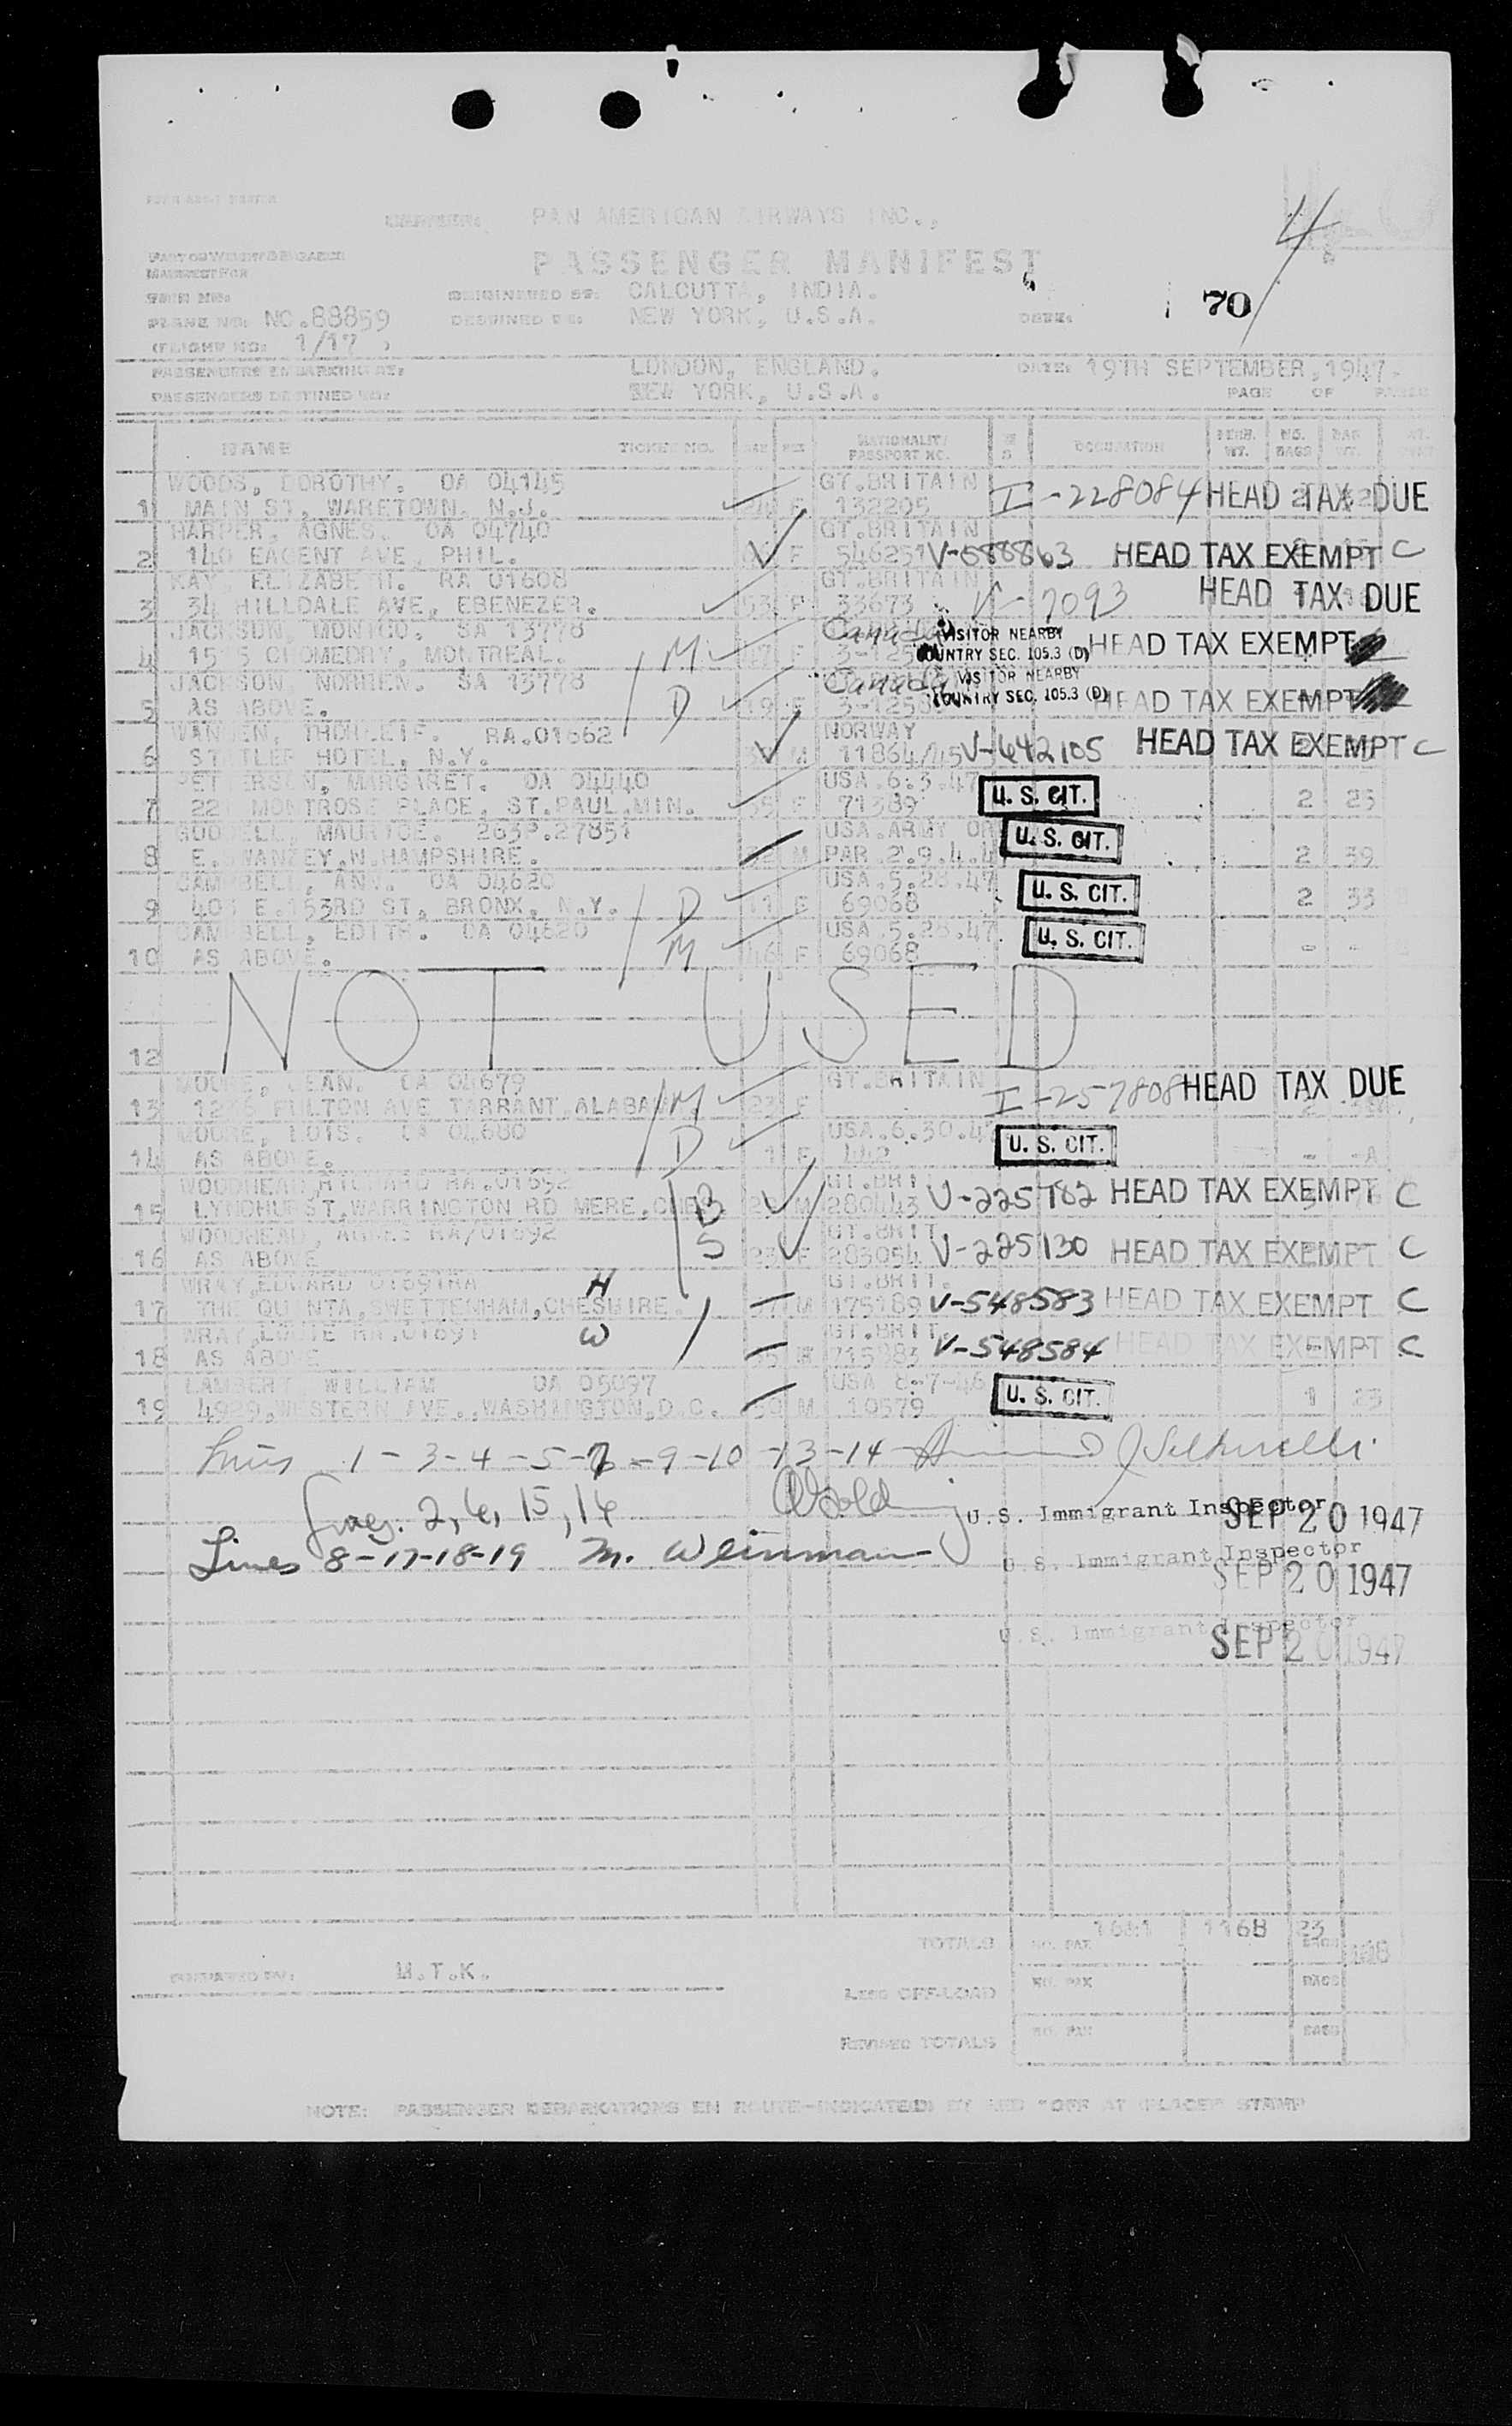 4
PAN AMERICAN AIRWAYS INC.,
PASSENGER MANIFEST
MANIFEST FOR
ORIGINATED AT: CALCUTTA, INDIA.
70
PLANE NO: NC.88859
DESTINED TO: NEW YORK, U.S.A.
(FLIGHT NO: 1/17 )
PASSENGERS EMBARKING AT: LONDON, ENGLAND. DATE: 19TH SEPTEMBER, 1947.
PASSENGERS DESTINED TO: NEW YORK, U.S.A. PAGE OF
NAME TICKET NO. AGE SEX NATIONALITY PASSPORT NO. OCCUPATION NO. BAGS
WOODS, DOROTHY. OA 04145 GT.BRITAIN
1 MAIN ST, WARETOWN. N.J. F 132205 I-228084 HEAD TAX DUE
HARPER, AGNES. OA 04740 GT.BRITAIN
2 140 AVE, PHIL. F 546251 HEAD TAX EXEMPT C
KAY, ELIZABETH. RA 01608 GT.BRITAIN
3 34 HILLDALE AVE, EBENEZER. 53 F 33673 V-7093 HEAD TAX DUE
JACKSON, SA 13778 Canada
4 MONTREAL. M F VISITOR NEARBY COUNTRY SEC. 105.3 (D) HEAD TAX EXEMPT
JACKSON, NORREN. SA 13778 Canada
5 AS ABOVE. D 19 F VISITOR NEARBY COUNTRY SEC. 105.3 (D) HEAD TAX EXEMPT
RA.01662 NORWAY
6 STATLER HOTEL, N.Y. M 11864/45 V-642105 HEAD TAX EXEMPT C
MARGARET. OA 04440 USA.6.3.47
7 22 MONTROSE PLACE, ST.PAUL.MIN. F 71389 U.S. CIT. 2 23
MAURICE. 263P.27851 USA.ARMY
8 E. SWANZEY, N.HAMPSHIRE. M U.S. CIT. 2 39
CAMPBELL, ANN. OA 04620 USA.5.28.47
9 E.153RD ST, BRONX, N.Y. D 11 F 69068 U.S. CIT. 2 33
CAMPBELL, EDITH. OA 04620 USA.5.28.47
10 AS ABOVE. M 46 F 69068 U.S. CIT. - -
NOT USED
12
MOORE, JEAN. OA 04679 GT.BRITAIN
13 FULTON AVE TARRANT ALABAMA M 23 F I-257808 HEAD TAX DUE
MOORE, LOIS. OA 04680 USA.6.30.47
14 AS ABOVE. D 1 F U.S. CIT. -
WOODHEAD, RICHARD RA.01592 GT.BRIT
15 LYNDHURST, WARRINGTON RD MERE, B M 280443 V-225782 HEAD TAX EXEMPT C
WOODHEAD, AGNES RA/01592 GT.BRIT
16 AS ABOVE S 23 F 283054 V-225130 HEAD TAX EXEMPT C
WRAY, EDWARD 01591RA H GT.BRIT.
17 THE QUINTA, SWETTENHAM, CHESHIRE. M 175189 V-548583 HEAD TAX EXEMPT C
WRAY, RA.01591 W GT.BRIT.
18 AS ABOVE V-548584 HEAD TAX EXEMPT C
LAMBERT WILLIAM OA 05097 USA 8-7-46
19 4929, WESTERN AVE., WASHINGTON, D.C. M 10579 U.S. CIT. 1 23
Lines 1-3-4-5-7-9-10-13-14
Lines. 2, 6, 15, 16 U.S. Immigrant Inspector SEP 20 1947
Lines 8-17-18-19 M. Weinman U.S. Immigrant Inspector SEP 20 1947
U.S. Immigrant Inspector SEP 20 1947
TOTALS NO. PAX 1168 23 BAGS
PREPARED BY: M.T.K.
LESS OFF-LOAD NO. PAX BAGS
REVISED TOTALS NO. PAX BAGS
NOTE: PASSENGER DEBARKATIONS EN ROUTE-INDICATED BY RED "OFF AT (PLACE)" STAMP